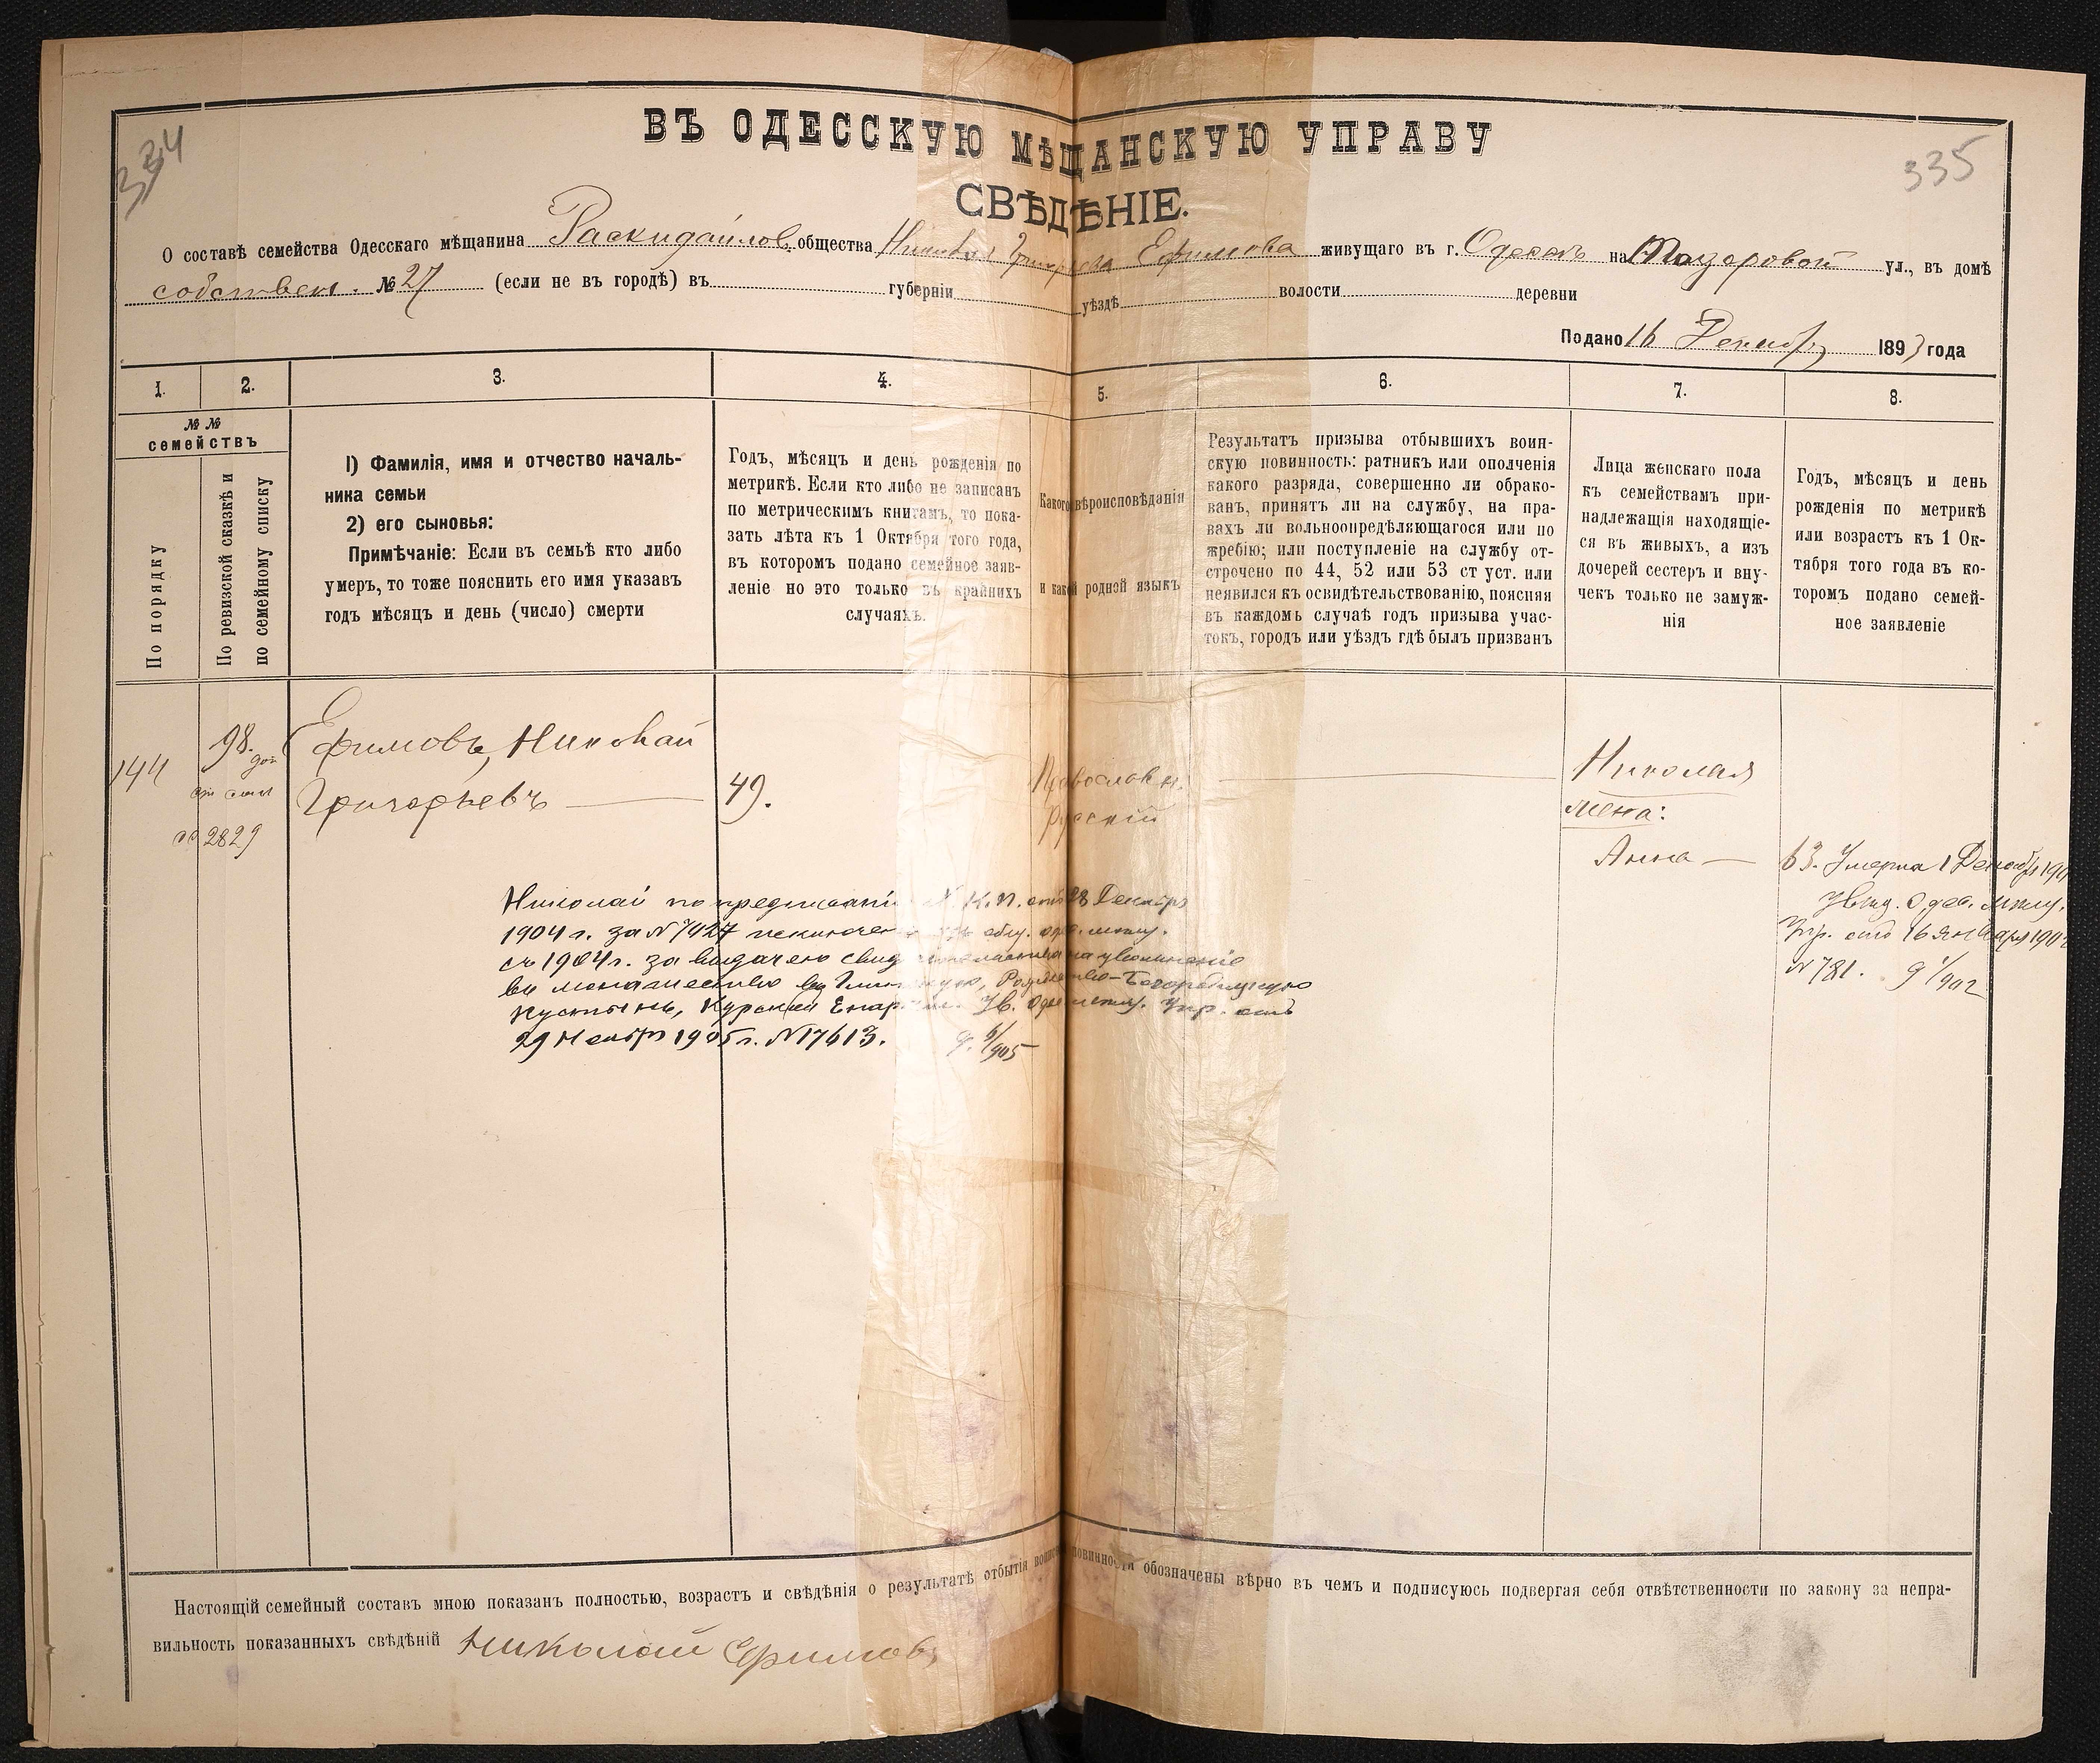 334
335
ВЪ ОДЕССКУЮ МѢЩАНСКУЮ УПРАВУ
СВѢДѢНІЕ.
О составѣ семейства Одесскаго мѣщанина Раскидайлов. общества Николая Григорьева Ефимова живущаго въ г. Одессѣ на ул., въ домѣ
собствен. № 27 (если не въ городѣ) въ губерніи уѣздѣ волости деревни
Подано 16 Декабр 1893 года
1. 2. 3. 4. 5. 6. 7. 8.
№ №
семействъ
По порядку
По ревизской сказкѣ и
по семейному списку
1) Фамилія, имя и отчество началь-
ника семьи
2) его сыновья:
Примѣчаніе: Если въ семьѣ кто либо
умеръ, то тоже пояснить его имя указавъ
годъ мѣсяцъ и день (число) смерти
Годъ, мѣсяцъ и день рожденія по
метрикѣ. Если кто либо не записанъ
по метрическимъ книгамъ, то пока-
зать лѣта къ 1 Октября того года,
въ которомъ подано семейное заяв-
леніе но это только въ крайнихъ
случаяхъ.
Какого вѣроисповѣданія
и какой родной языкъ
Результатъ призыва отбывшихъ воин-
скую повинность: ратникъ или ополченія
какого разряда, совершенно ли обрако-
ванъ, принятъ ли на службу, на пра-
вахъ ли вольноопредѣляющагося или по
жребію; или поступленіе на службу от-
строчено по 44, 52 или 53 ст уст. или
неявился къ освидѣтельствованію, поясняя
въ каждомъ случаѣ годъ призыва учас-
токъ, городъ или уѣздъ гдѣ былъ призванъ
Лица женскаго пола
къ семействамъ при-
надлежащія находящіе-
ся въ живыхъ, а изъ
дочерей сестеръ и вну-
чекъ только не замуж-
нія
Годъ, мѣсяцъ и день
рожденія по метрикѣ
или возрастъ къ 1 Ок-
тября того года въ ко-
торомъ подано семей-
ное заявленіе
144
98.
2829
Ефимовъ, Николай
Григорьевъ
49.
Православн.
русскій
Николая
жена:
Анна
63. Умерла 1 Декабр
Упр. отъ 16 Января 1902
№ 781. 9 1/902
Николай по предписанію К.П. отъ 28 Декабр
1904 г. за № 7427 исключенъ изъ общ. од. мѣщ.
съ 1904 г. за выдачею свид на увольненіе
въ монашество въ Глинскую, Рождество-Богородицкую
пустынь, Курской Епархіи. Ув. Одес. мѣщ. Упр. отъ
29 Ноябр 1905 г. № 17613.
Настоящій семейный составъ мною показанъ полностью, возрастъ и свѣдѣнія о результатѣ отбытія воинской повинности обозначены вѣрно въ чемъ и подписуюсь подвергая себя отвѣтственности по закону за непра-
вильность показанныхъ свѣдѣній Николай Ефимовъ